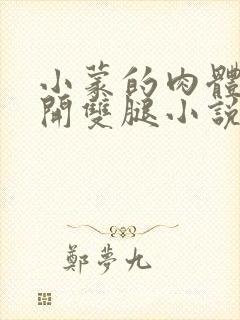 小蒙的肉體
開雙腿小說
鄭夢九